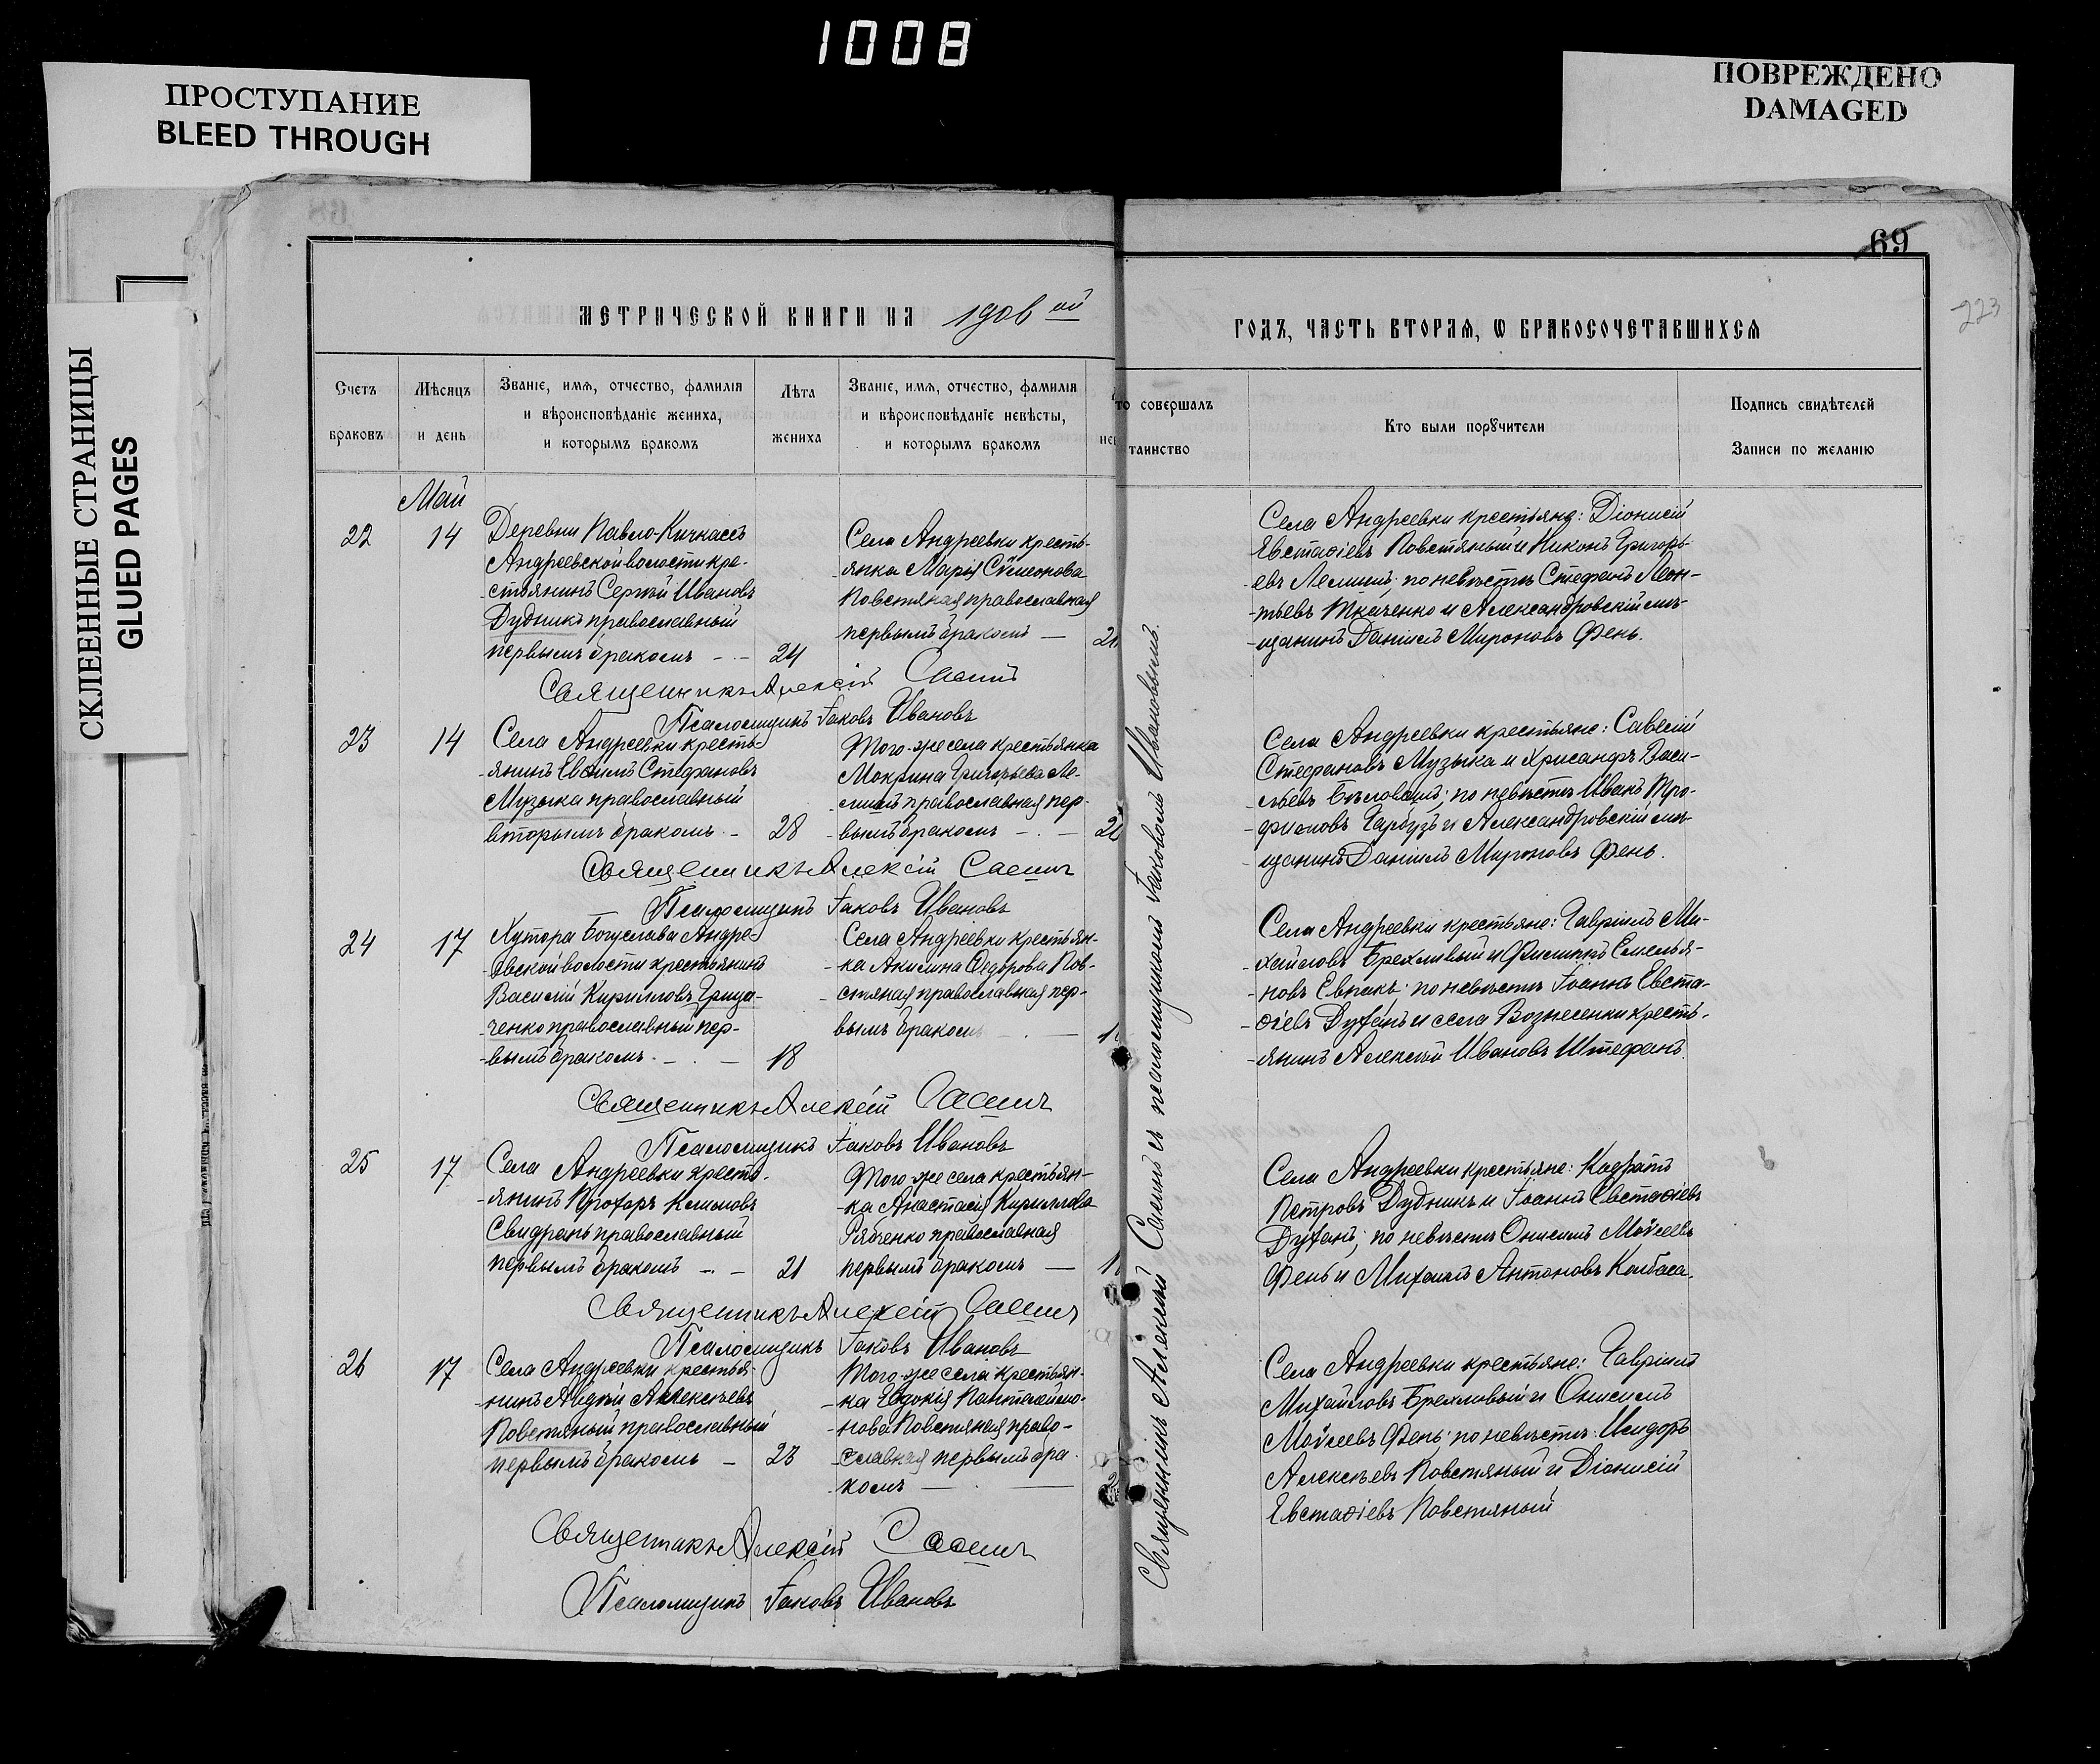 1008
ПРОСТУПАНИЕ
BLEED THROUGH
ПОВРЕЖДЕНО
DAMAGED
СКЛЕЕННЫЕ СТРАНИЦЫ
GLUED PAGES
69
223
МЕТРИЧЕСКОЙ КНИГИ НА 1906 ой
ГОДЪ, ЧАСТЬ ВТОРАЯ, Ѡ БРАКОСОЧЕТАВШИХСЯ
Счетъ
браковъ
Мѣсяцъ
и день
Званіе, имя, отчество, фамилія
и вѣроисповѣданіе жениха,
и которымъ бракомъ
Лѣта
жениха
Званіе, имя, отчество, фамилія
и вѣроисповѣданіе невѣсты,
и которымъ бракомъ
то совершалъ
таинство
Кто были порꙋчители
Подпись свидѣтелей
Записи по желанію
Май
22
14
Деревни Павло-Кичкасъ
Андреевской волости кре-
-стьянинъ Сергѣй Ивановъ
Дудникъ православный
первымъ бракомъ - -
24
Села Андреевки кресть-
-янка Марія Сѵмеонова
Повстяная православная
первымъ бракомъ —
Села Андреевки крестьяне: Діонисій
Евстаѳіевъ Повстяный и Никонъ Григорь-
-евъ Лемишъ; по невѣстѣ Стефанъ Леон-
-тьевъ Ткаченко и Александровскій мѣ-
-щанинъ Даніилъ Мироновъ Фень.
Священникъ Алексій Саенъ
Псаломщикъ Іаковъ Ивановъ
23
14
Села Андреевки кресть-
-янинъ Евѳимъ Стефановъ
Музыка православный
вторымъ бракомъ -
28
Того-же села крестьянка
Мокрина Григорьева Ле-
-мишъ православная пер-
-вымъ бракомъ - . —
Села Андреевки крестьяне: Савелій
Стефановъ Музыка и Хрисанфъ Васи-
-льевъ; по невѣстѣ Иванъ Тро-
-фимовъ Гарбузъ и Александровскій мѣ-
-щанинъ Даніилъ Мироновъ Фень.
Священникъ Алексій Саенъ
Псаломщикъ Іаковъ Ивановъ
24
17
Хутора Богуслава Андре-
-евской волости крестьянинъ
Василій Кирилловъ Грица-
-ченко православный пер-
-вымъ бракомъ - . —
18
Села Андреевки крестьян-
-ка Акилина Ѳедорова Пов-
-стяная православная пер-
вымъ бракомъ - . —
Села Андреевки крестьяне: Гавріилъ Ми-
-хайловъ Брехливый и Филиппъ Емелья-
-новъ Евпакъ; по невѣстѣ Іоаннъ Евста-
-ѳіевъ Духанъ и села Вознесенки кресть-
-янинъ Алексѣй Ивановъ Штефанъ.
Священникъ Алексій Саенъ
Псаломщикъ Іаковъ Ивановъ
25
17
Села Андреевки кресть-
-янинъ Прохоръ Климовъ
Свидранъ православный
первымъ бракомъ - . —
21
Того-же села крестьян-
-ка Анастасія Кириллова
Рябченко православная
первымъ бракомъ —
Села Андреевки крестьяне: Кодратъ
Петровъ Дудникъ и Іоаннъ Евстаѳіевъ
Духанъ; по невѣстѣ Онисимъ Моѵсеевъ
Фень и Михаилъ Антоновъ Колбаса.
Священникъ Алексій Саенъ
Псаломщикъ Іаковъ Ивановъ
26
17
Села Андреевки крестья-
-нинъ Андрей Алексѣевъ
Повстяный православный
первымъ бракомъ -
23
Того-же села крестьян-
-ка Евдокія Пантелеймо-
-нова Повстяная право-
-славная первымъ бра-
-комъ — . —
Села Андреевки крестьяне: Гавріилъ
Михайловъ Брехливый и Онисимъ
Моѵсеевъ Фень; по невѣстѣ: Исидоръ
Алексѣевъ Повстяный и Діонисій
Евстаѳіевъ Повстяный
Священникъ Алексій Саенъ
Псаломщикъ Іаковъ Ивановъ
Священникъ Алексій Саенъ съ псаломщикомъ Іаковомъ Ивановымъ.